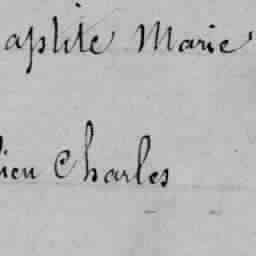 aptite Marie
lien Charles